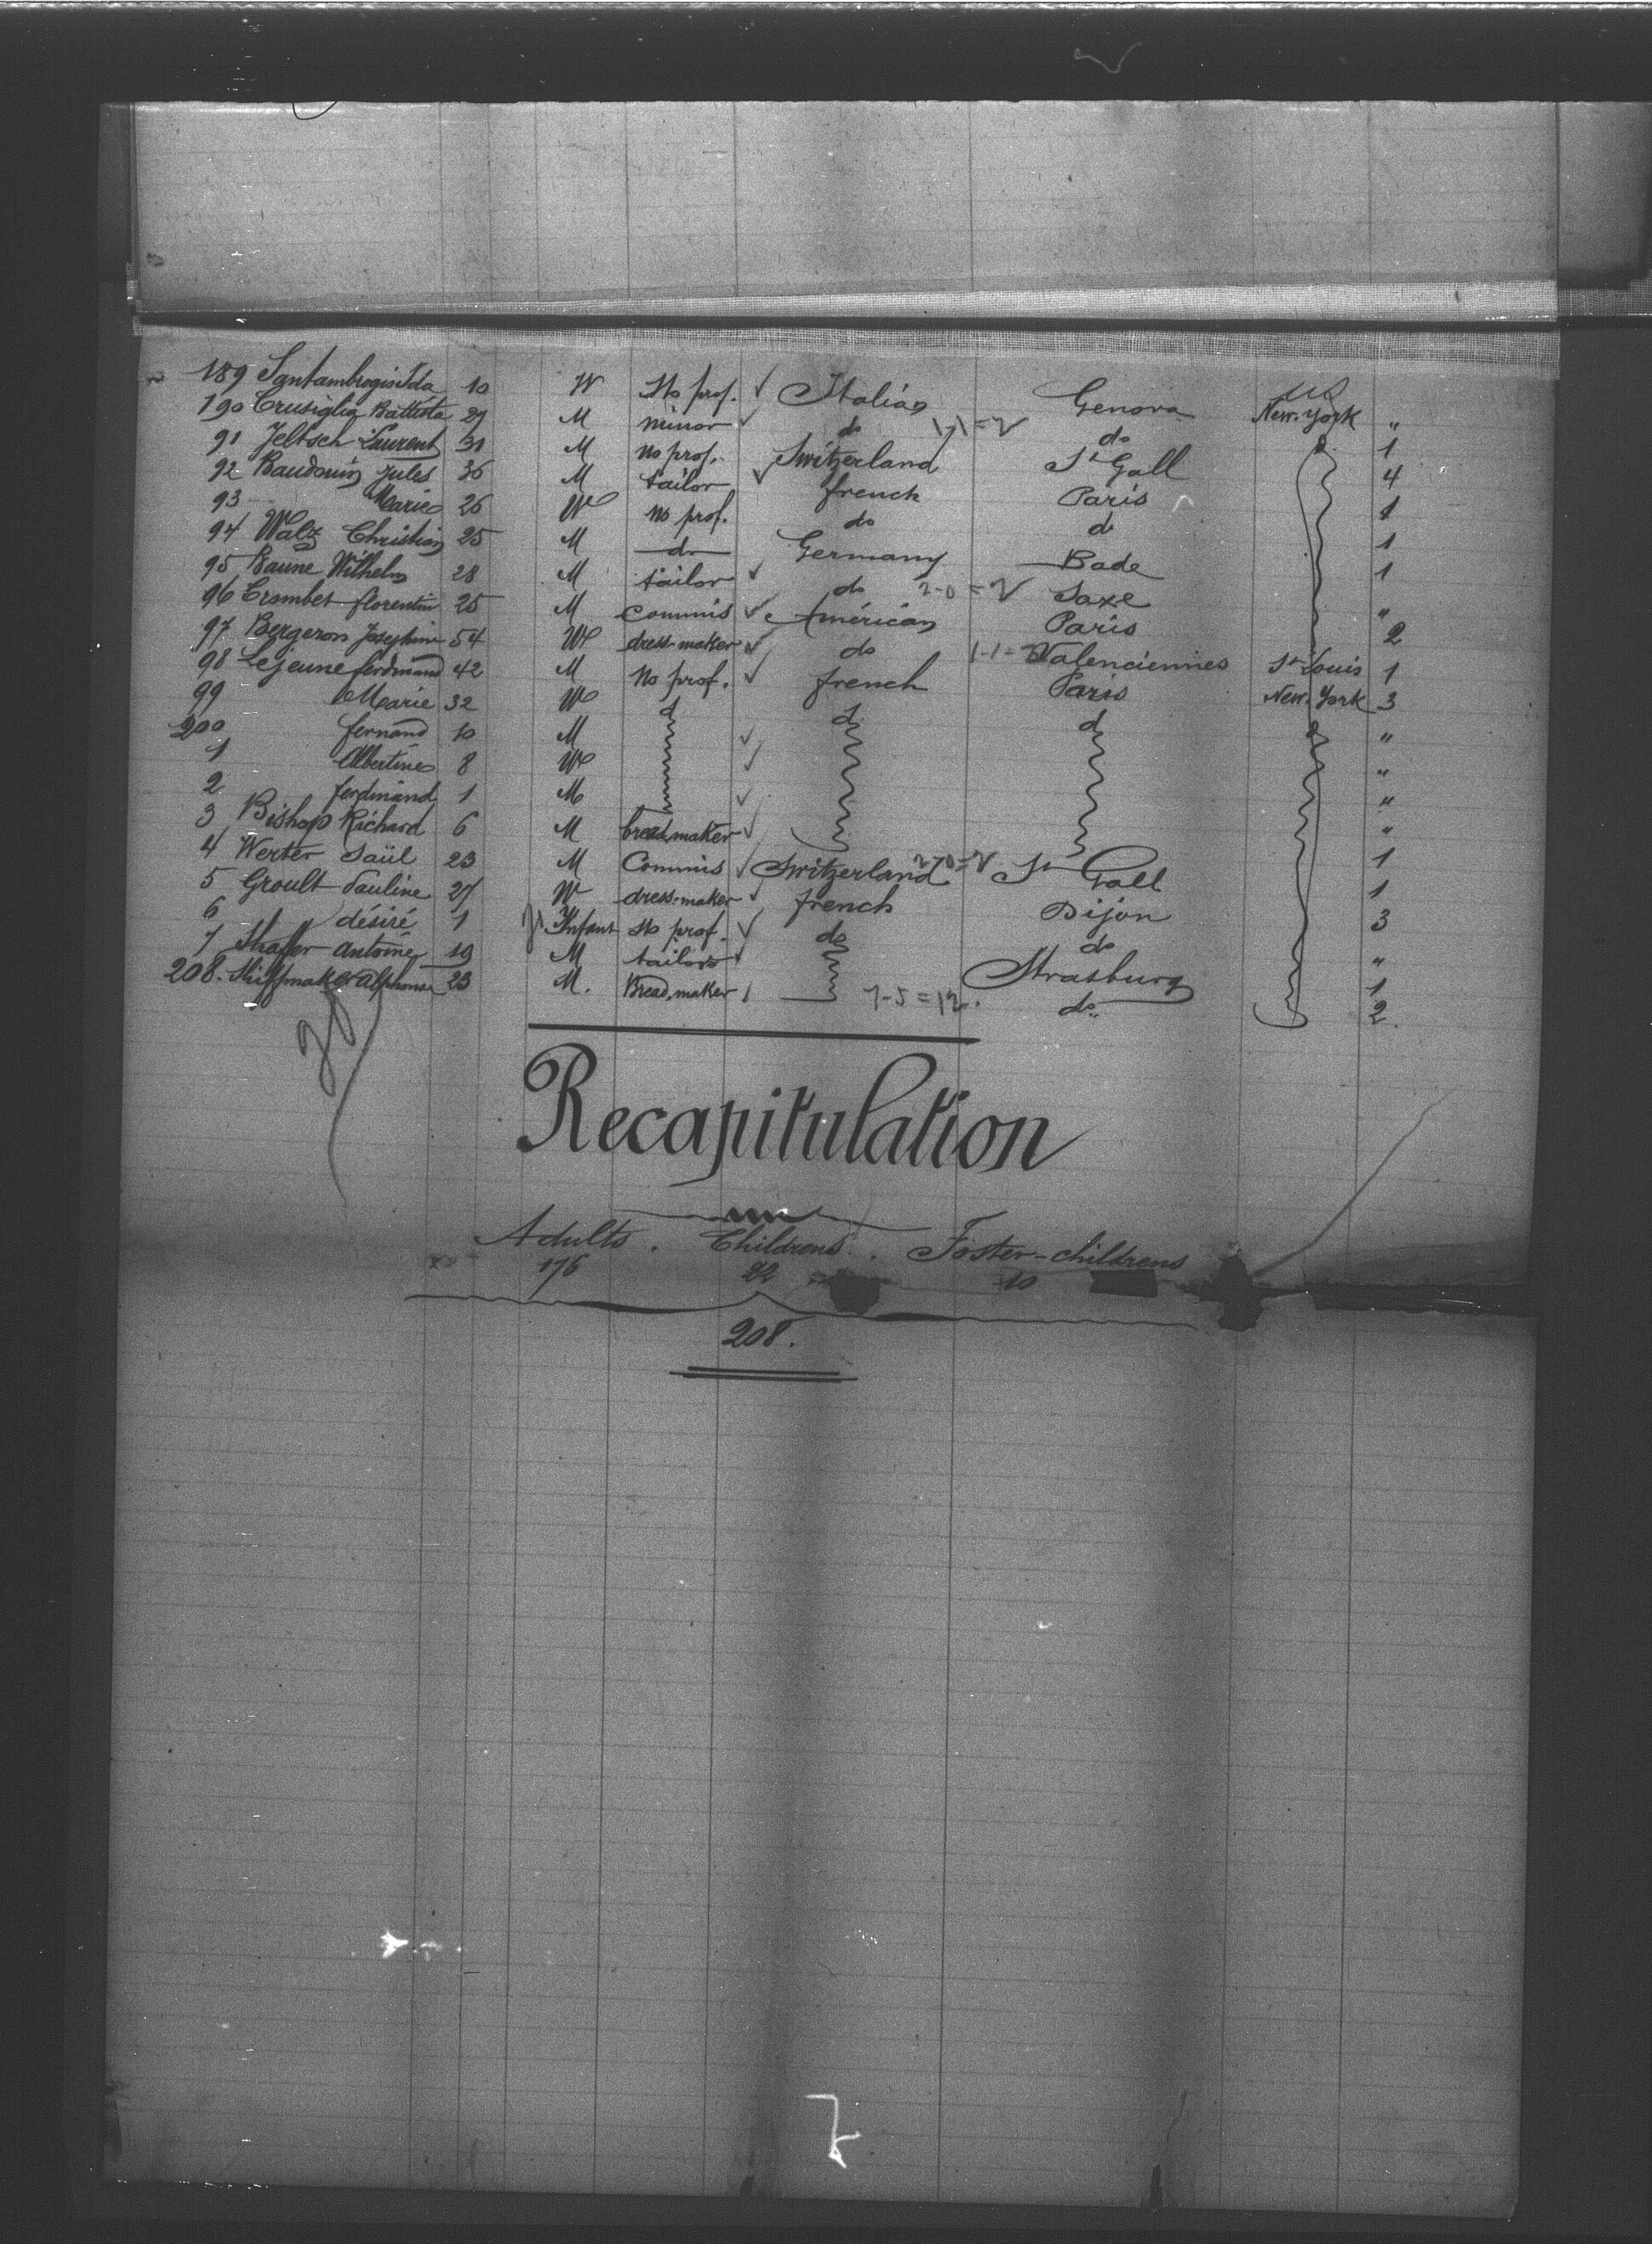 189 Santambrogio Ida 10 W No prof. Italian Genova New-York "
190 Crusiglia Battista 27 M minor do 1-1=2 do 1
91 Jeltsch Laurent 31 M no prof. Switzerland St Gall 4
92 Baudouin Jules 36 M tailor french Paris 1
93 Marie 26 W no prof. do do 1
94 Walz Christian 25 M do Germany Bade 1
95 Baune Wilhelm 28 M tailor do 2-0=2 Saxe "
96 Crombet florentin 25 M commis Américan Paris 2
97 Bergeron Josephine 54 W dress-maker do 1-1=2 Valenciennes St Louis 1
98 Lejeune ferdinand 42 M No prof. french Paris New-York 3
99 Marie 32 W d d d "
200 fernand 10 M "
1 Albertine 8 W "
2 ferdinand 1 M "
3 Bishop Richard 6 M bread maker 1
4 Werter Saül 23 M Commis Switzerland 2-0=2 St Gall 1
5 Groult Pauline 27 W dress-maker french Dijon 3
6 désiré 1 Infant No prof. do do "
7 Shaffer Antoine 19 M tailor Strasburg 1
208. Shiffmaker Alphonse 23 M. Bread maker 7-5=12. do 2.
Recapitulation
Adults. Childrens. Foster-childrens
176 22 10
208.